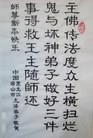 主佛传法度众生横扫烂
鬼与坏神弟子做好三件
事得救王主随师还
师尊新年快乐
中国黑龙江